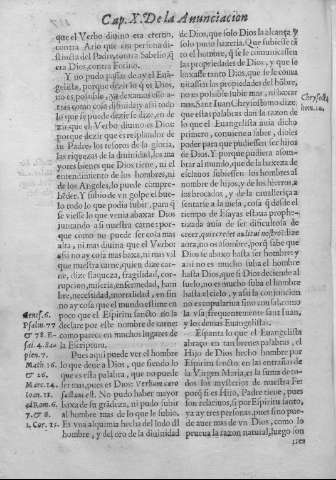 Cap. X. De la Anunciacion
que el Verbo diuino era eterno,
contra Ario que era persona di-
stincta del Padre, contra Sabelio q̃
era Dios, contra Fotino.
Y no pudo passar de ay el Euã-
gelista, porque dezir lo q̃ es Dios,
no es possible, ya dexamos di-
chas como cosa
que se puede dezir es dezir, en de-
zir que el Verbo diuino es Dios:
por que dezir que es resplandor de
su Padre, los tesoros de la gloria,
las riquezas de la diuinidad, los ma-
yores bienes que Dios tiene, ni el
entendimiento de los hombres, ni
de los Angeles, lo puede comprẽ-
hẽder. Y subio de vn golpe el buelo
todo lo que podia subir, para q̃
se viesse lo que venia abaxar Dios
juntando a si nuestra carne: por-
que como no puede ser cosa mas
alta, ni mas diuina que el Verbo:
assi no ay cosa mas baxa, ni mas vil
que nuestra carne, quien dize car-
ne, dize flaqueza, fragilidad, cor-
rupcion, miseria, enfermedad, ham-
bre, necessidad, mortalidad, en fin
no ay cosa que el mundo estime en
poco que el Espiritu sancto no la
declare por este nombre de carne
como parece en muchos lugares de
la Escriptura.
Pues aqui puede ver el hombre
lo que deue a Dios, que siendo lo
que es esta palabra, que no puede
ser mas, pues es Dios: Verbum caro
factum est. No pudo hazer mayor
baxa de su grãdeza, ni pudo subir
al hombre mas de lo que le subio.
Es vna alquimia hecha del lodo dl
hombre, y del oro de la diuinidad
de Dios, que solo Dios la alcança y
solo pudo hazerla. Que subiesse cã
to el hombre, q̃ se le comunicassen
las propiedades de Dios, y que se
baxasse tanto Dios, que se le comu
nicassen las propiedades del hõbre,
no es possible subir mas, ni baxar
mas. San Iuan Chrysostomo dize:
que estas palabras dan la razon de
lo que el Euangelista auia dicho
primero, conuiene a saber, dioles
poder para que pudiessen ser hijos
de Dios. Y porque pudiera assom-
brar al mundo, que de la baxeza de
esclauos subiessen los hombres al
nombre de hijos, y de los hierros a
los brocados, y de la caualleriza a
sentarse a la mesa, cosa q̃ desde el
tiempo de Esayas estaua prophe-
tizada auia de ser dificultosa de
creer, quis credet auditui nostro? dize
aora, no os assombre, porq̃ sabe que
Dios se abaxo hasta ser hombre y
no es mucho suba el hombre
hasta Dios, que si Dios deciende al
suelo, no es mucho suba el hombre
hasta el cielo, y assi la conjuncion
no es copulatiua sino causal, como
la vsa frequentemente sant Iuan,
y los demas Euangelistas.
Espanta lo que el Euangelista
abraço en tan breues palabras, el
Hijo de Dios hecho hombre por
Espiritu sancto en las entrañas de
la Virgen Maria, es la suma de to-
dos los mysterios de nuestra Fe
porq̃ si es Hijo, Padre tiene, pues
son relatiuos, si por Espiritu santo,
ya ay tres personas, pues sino pue-
de auer mas de vn Dios, como lo
prueua la razon natural, luego son
Genes. 6.
Psalm. 77
& 78. E-
pien. 7.
Matt. 16.
& 26.
Marc. 14.
Ioan. 11.
ad Rom. 6.
7. & 8.
1. Cor. 15.
Chrysost.